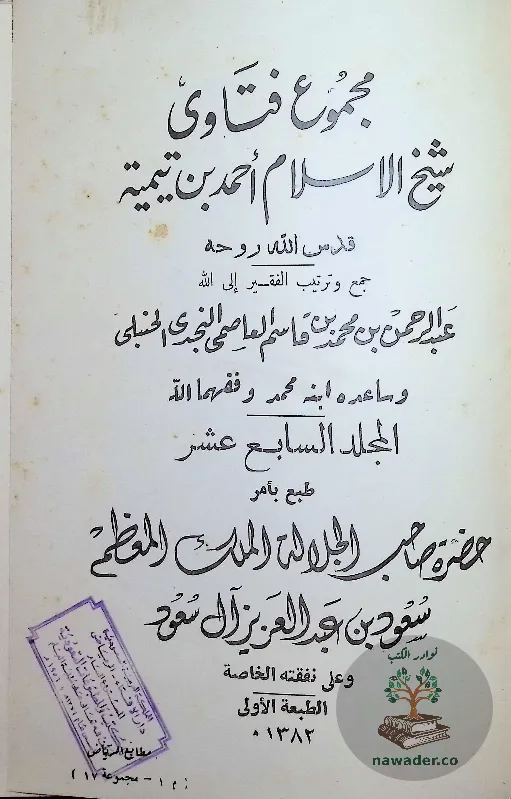 مجموع فتاوى
شيخ الاسلام أحمد بن تيمية
قدس الله روحه
جمع وترتيب الفقير إلى الله
عبد الرحمن بن محمد بن قاسم العاصمي النجدي الحنبلي
وساعده ابنه محمد وفقهما الله
المجلد السابع عشر
طبع بأمر
حضرة صاحب الجلالة الملك المعظم
سعود بن عبد العزيز آل سعود
وعلى نفقته الخاصة
الطبعة الأولى
١٣٨٢ ه
مطابع الرياض
( م ١ - مجموعة ١٧ )
نوادر الكتب
nawader.co